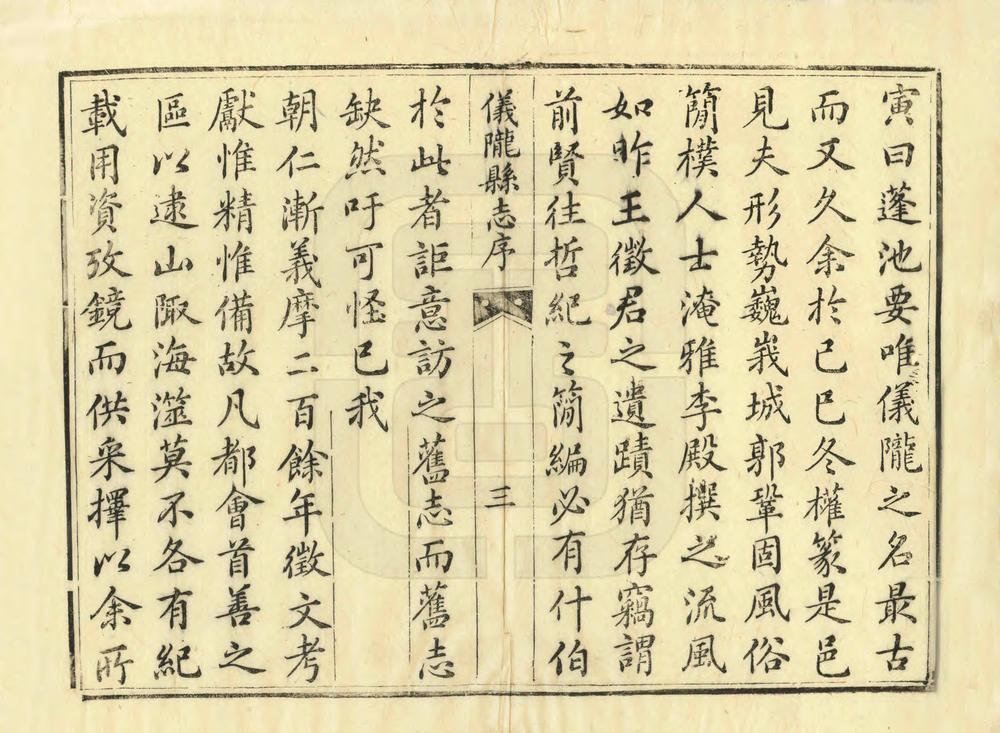 寅曰蓬池要唯儀隴之名最古
而又久余於己巳冬權篆是邑
見夫形勢巍峩城郭鞏固風俗
簡樸人士淹雅李殿撰之流風
如昨王徵君之遺蹟猶存竊謂
前賢往哲紀之簡編必有什伯
儀隴縣志序
三
於此者詎意訪之舊志而舊志
缺然吁可怪已我
朝仁漸義摩二百餘年徵文考
獻惟精惟備故凡都會首善之
區以逮山陬海澨莫不各有紀
載用資攷鏡而供采擇以余所